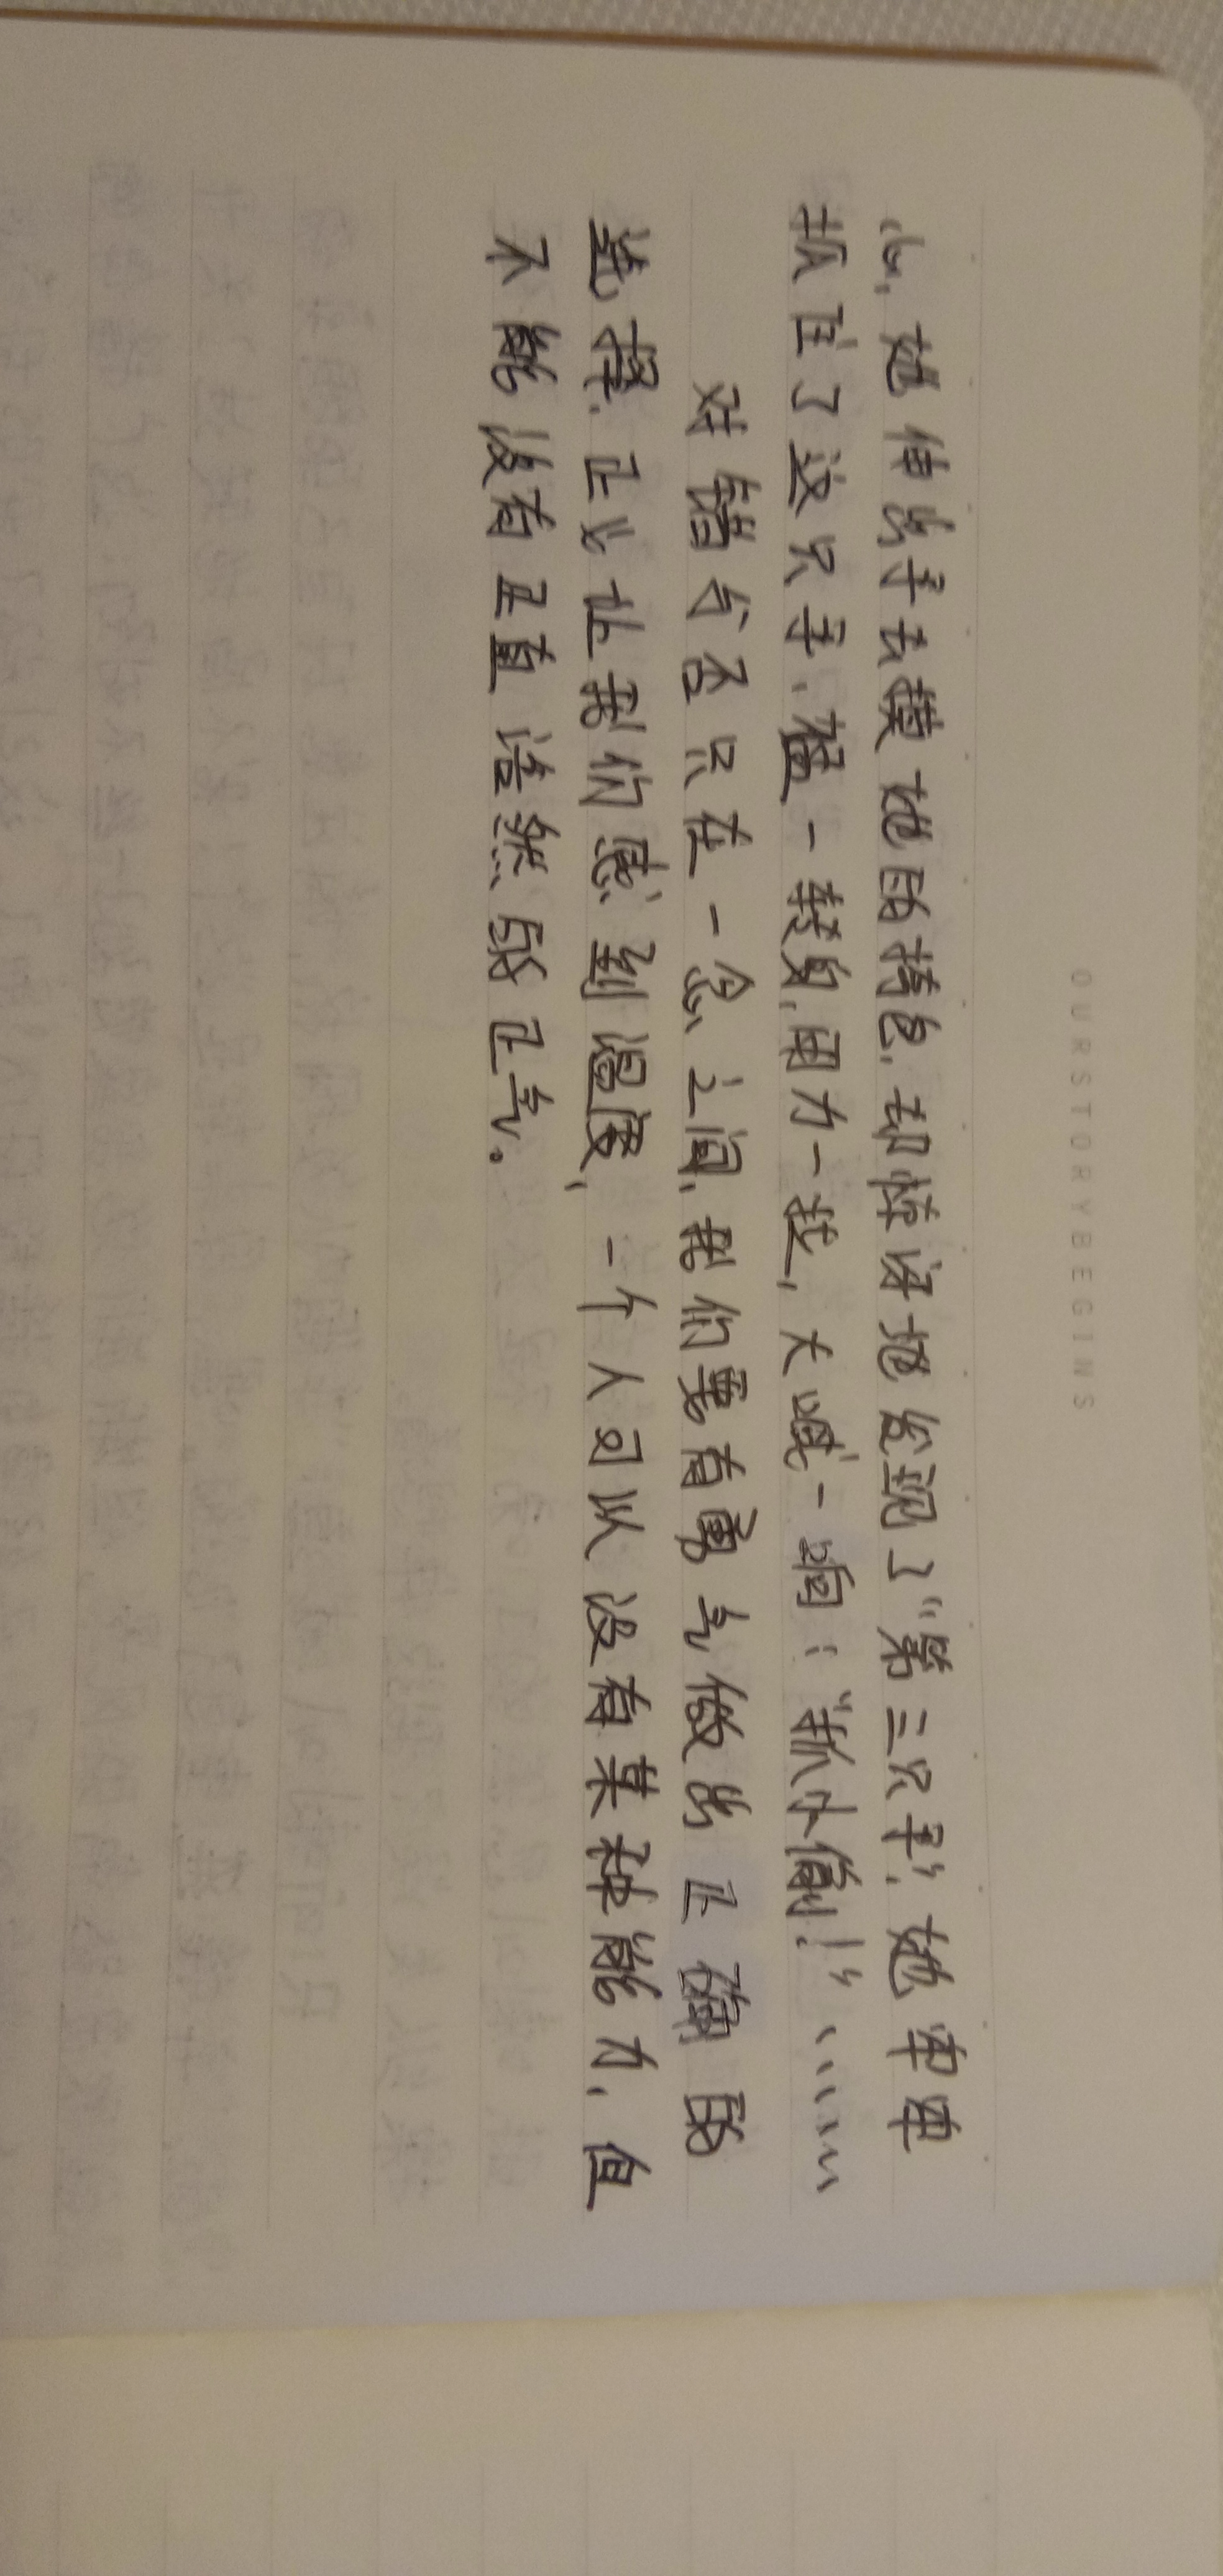 OUR STORY BEGINS
心,她伸出手去摸她的挎包,却惊讶地发现了“第三只手”,她牢牢
抓住了这只手,猛一转身,用力一拽,大喊一响:“抓小偷!”……
对错与否只在一念之间,我们要有勇气做出正确的
选择,正义让我们感到温度,一个人可以没有某种能力,但
不能没有正直浩然的正气。